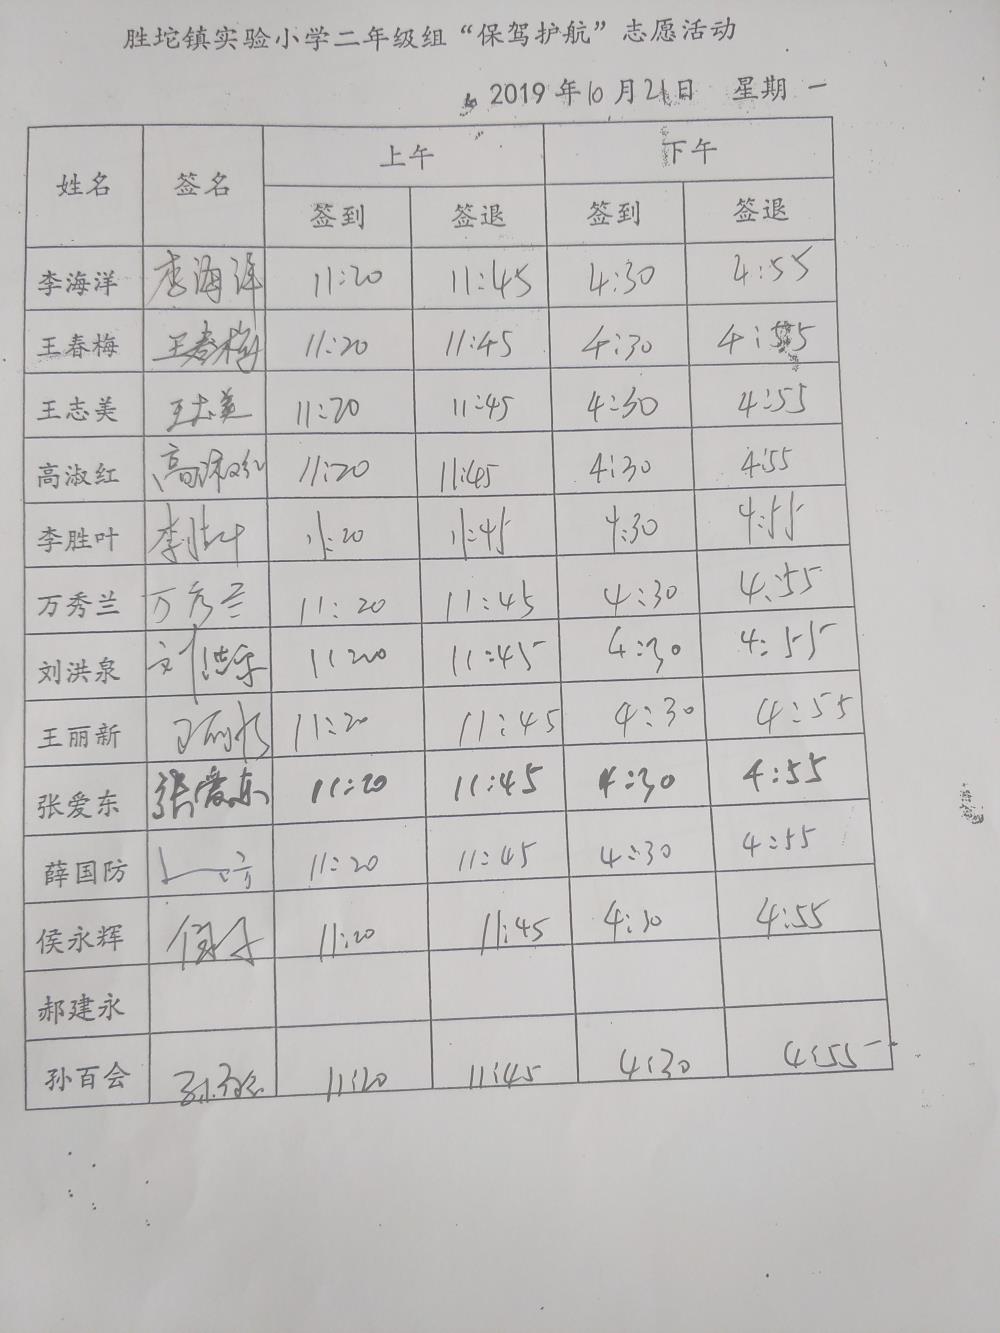 胜坨镇实验小学二年级组“保驾护航”志愿活动
2019年10月21日 星期一
姓名 签名 上午 下午
签到 签退 签到 签退
李海洋 李海洋 11:20 11:45 4:30 4:55
王春梅 王春梅 11:20 11:45 4:30 4:55
王志美 王志美 11:20 11:45 4:30 4:55
高淑红 高淑红 11:20 11:45 4:30 4:55
李胜叶 李胜叶 11:20 11:45 4:30 4:55
万秀兰 万秀兰 11:20 11:45 4:30 4:55
刘洪泉 刘洪泉 11:20 11:45 4:30 4:55
王丽新 王丽新 11:20 11:45 4:30 4:55
张爱东 张爱东 11:20 11:45 4:30 4:55
薛国防 11:20 11:45 4:30 4:55
侯永辉 11:20 11:45 4:30 4:55
郝建永
孙百会 孙百会 11:20 11:45 4:30 4:55